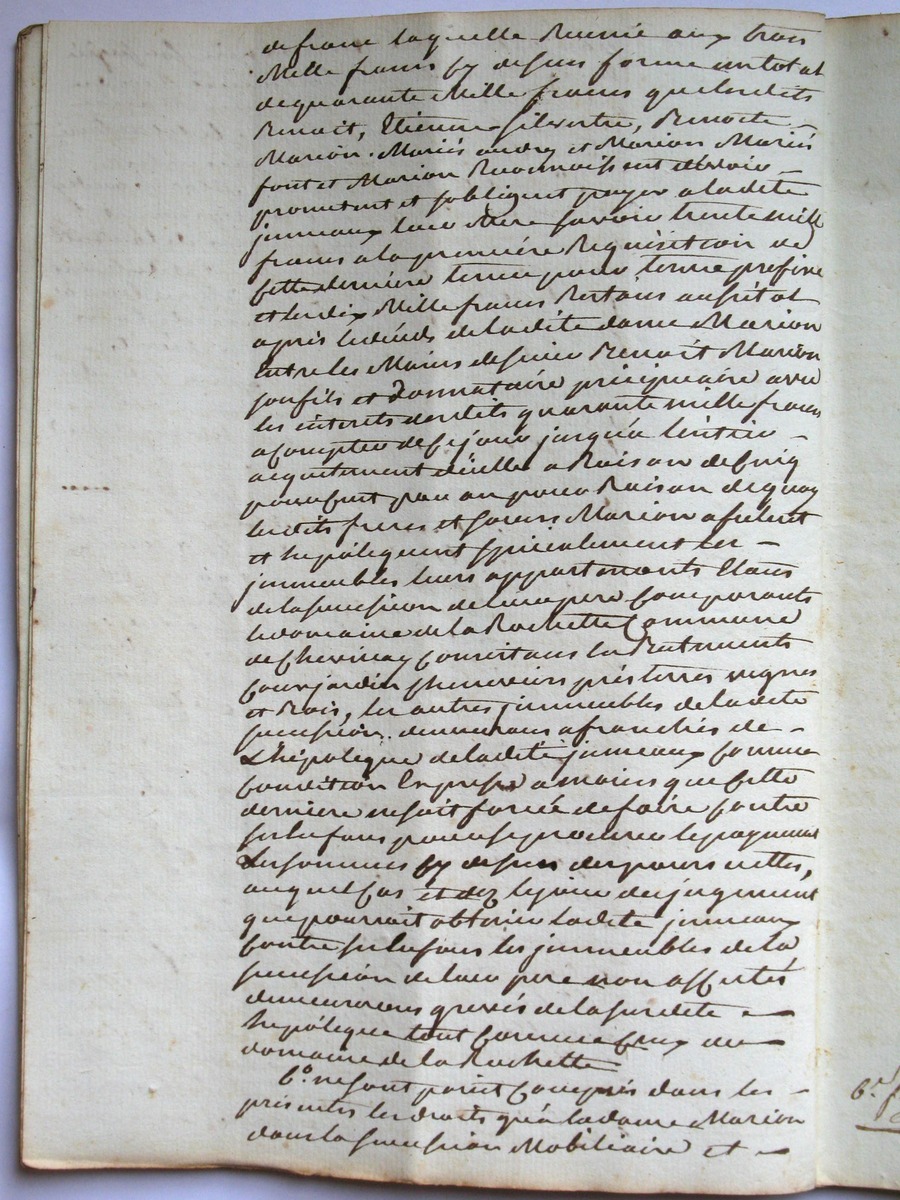 de franc laquelle Reunie aux trois
Mille francs cy dessus forme un total
de quarante Mille francs que lesdits
Benoit, Etienne Silvestre, Benoite
Marion. Mariés andrey et Marion Mariés
font et Marion Reconnoissent devoir
prometent et sobligent payer a ladite
jumeaux leur Mere savoir trente mille
francs a la premiére Requisition de
cette derniére terme pour terme prefixe
et les dix Mille francs Restans aussitot
aprés le décés de ladite dame Marion
entre les Mains de sieur Benoit Marion
son fils et Donnataire précipuaire avec
les interets desdits quarante mille francs
a compter de ce jour jusqu'a lentier
acquitement d'iselle a Raison de cinq
pour cent par an pour Raison de quoy
lesdits freres et soeurs Marion afectent
et hepotequent specialement les
immeubles leurs appartenants Etans
de la sucession de leur pere Comporants
le domaine de la Rochette Commune
de Chevinay Consistans en Batiments
Cour jardin chenevier prés terres vignes
et Bois, les autres immeubles de ladite
sucession. demeurans afranchis de
L'hepoteque de ladite jumeaux Comme
Condition Expresse a moins que cette
derniere ne soit forcée de faire contre
ses enfans pour se procurer le payement
des sommes cy dessus des poursuittes,
auquel cas et dez le jour des jugements
que pourrait obtenir ladite jumeaux
Contre ses enfans les immeubles de la
sucession de leur pere non affectés
demeureront grevés de la susdite
hepoteque tout Comme Ceux du
domaine de la Rochette
6.º ne sont point Compris dans les
présentes les droits qu'a la dame Marion
dans la sucession Mobiliaire et
6.º